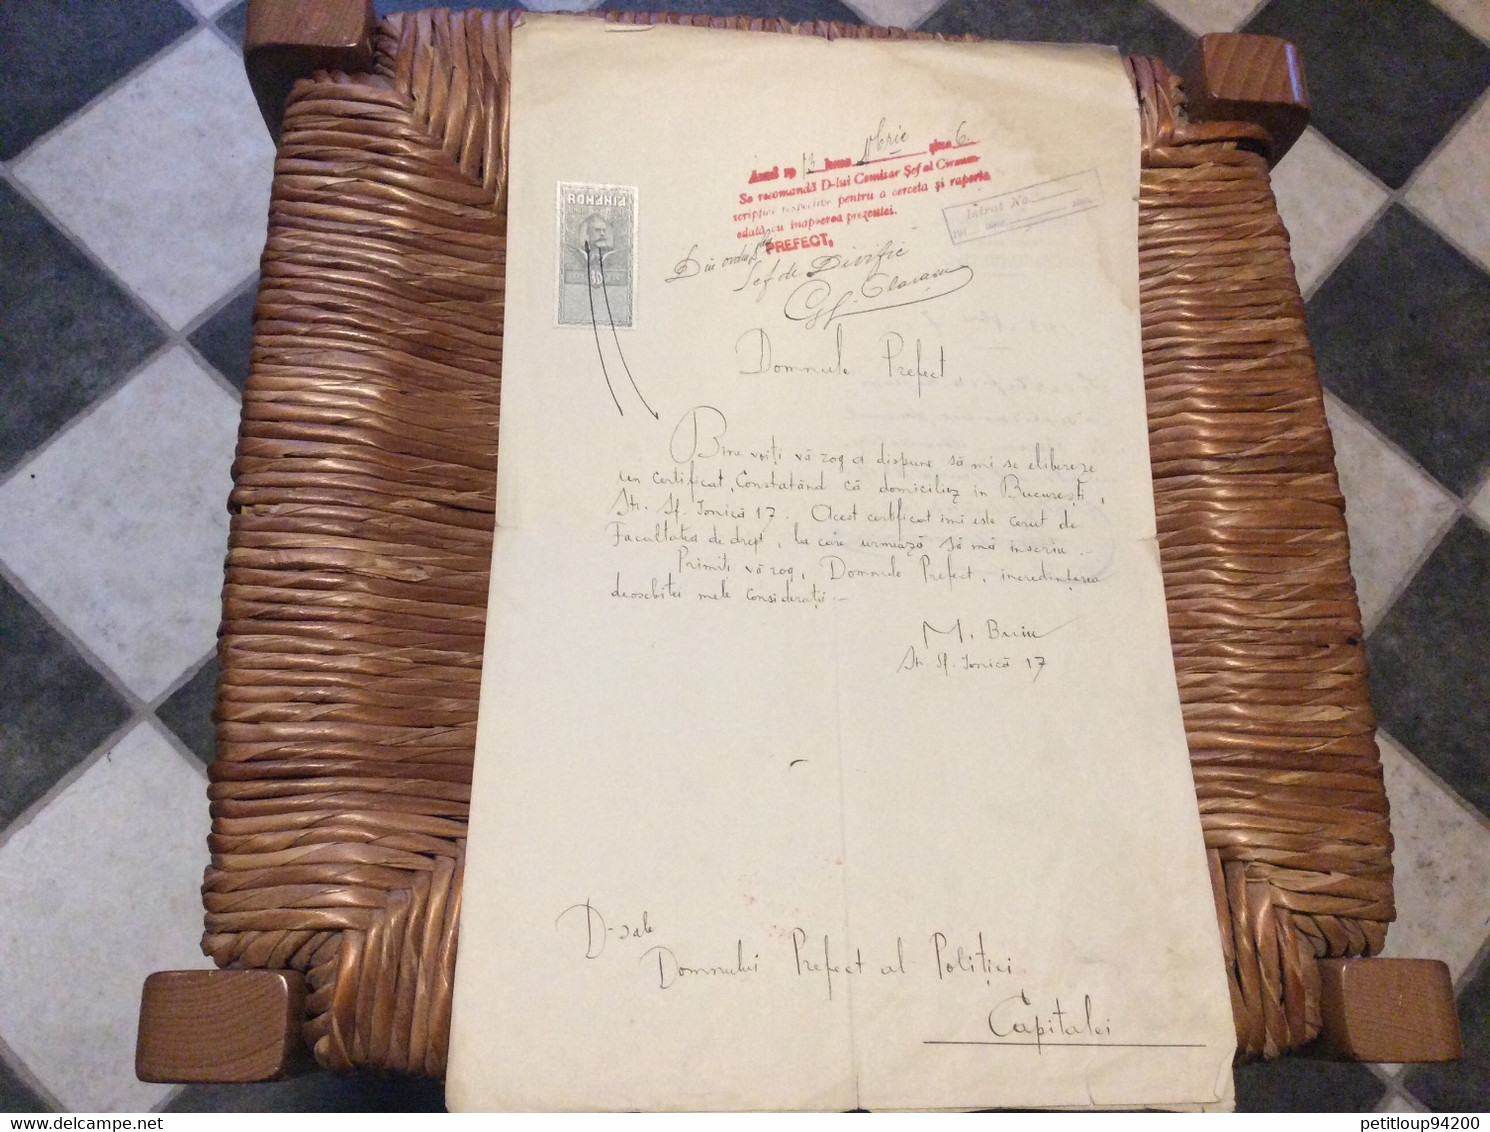 Anul 1913 luna 9brie ziua 6.
Se recomandă D-lui Comisar Şef al Circum-
scripţiei respective pentru a cerceta şi raporta
odată cu înapoerea prezentei.
PREFECT,
Din ordin
Şef de Divizie
Intrat No.
191
ROMANIA
Domnule Prefect
Bine voiţi vă rog a dispune să mi se elibereze
un certificat, Constatând că domiciliez în Bucureşti,
Str. Sf. Ionică 17. Acest certificat îmi este cerut de
Facultatea de drept, la care urmează să mă înscriu.
Primiţi vă rog, Domnule Prefect, încredinţarea
deosebitei mele consideraţii.
M.
Str. Sf. Ionică 17
D-sale
Domnului Prefect al Poliţiei
Capitalei
petitloup94200